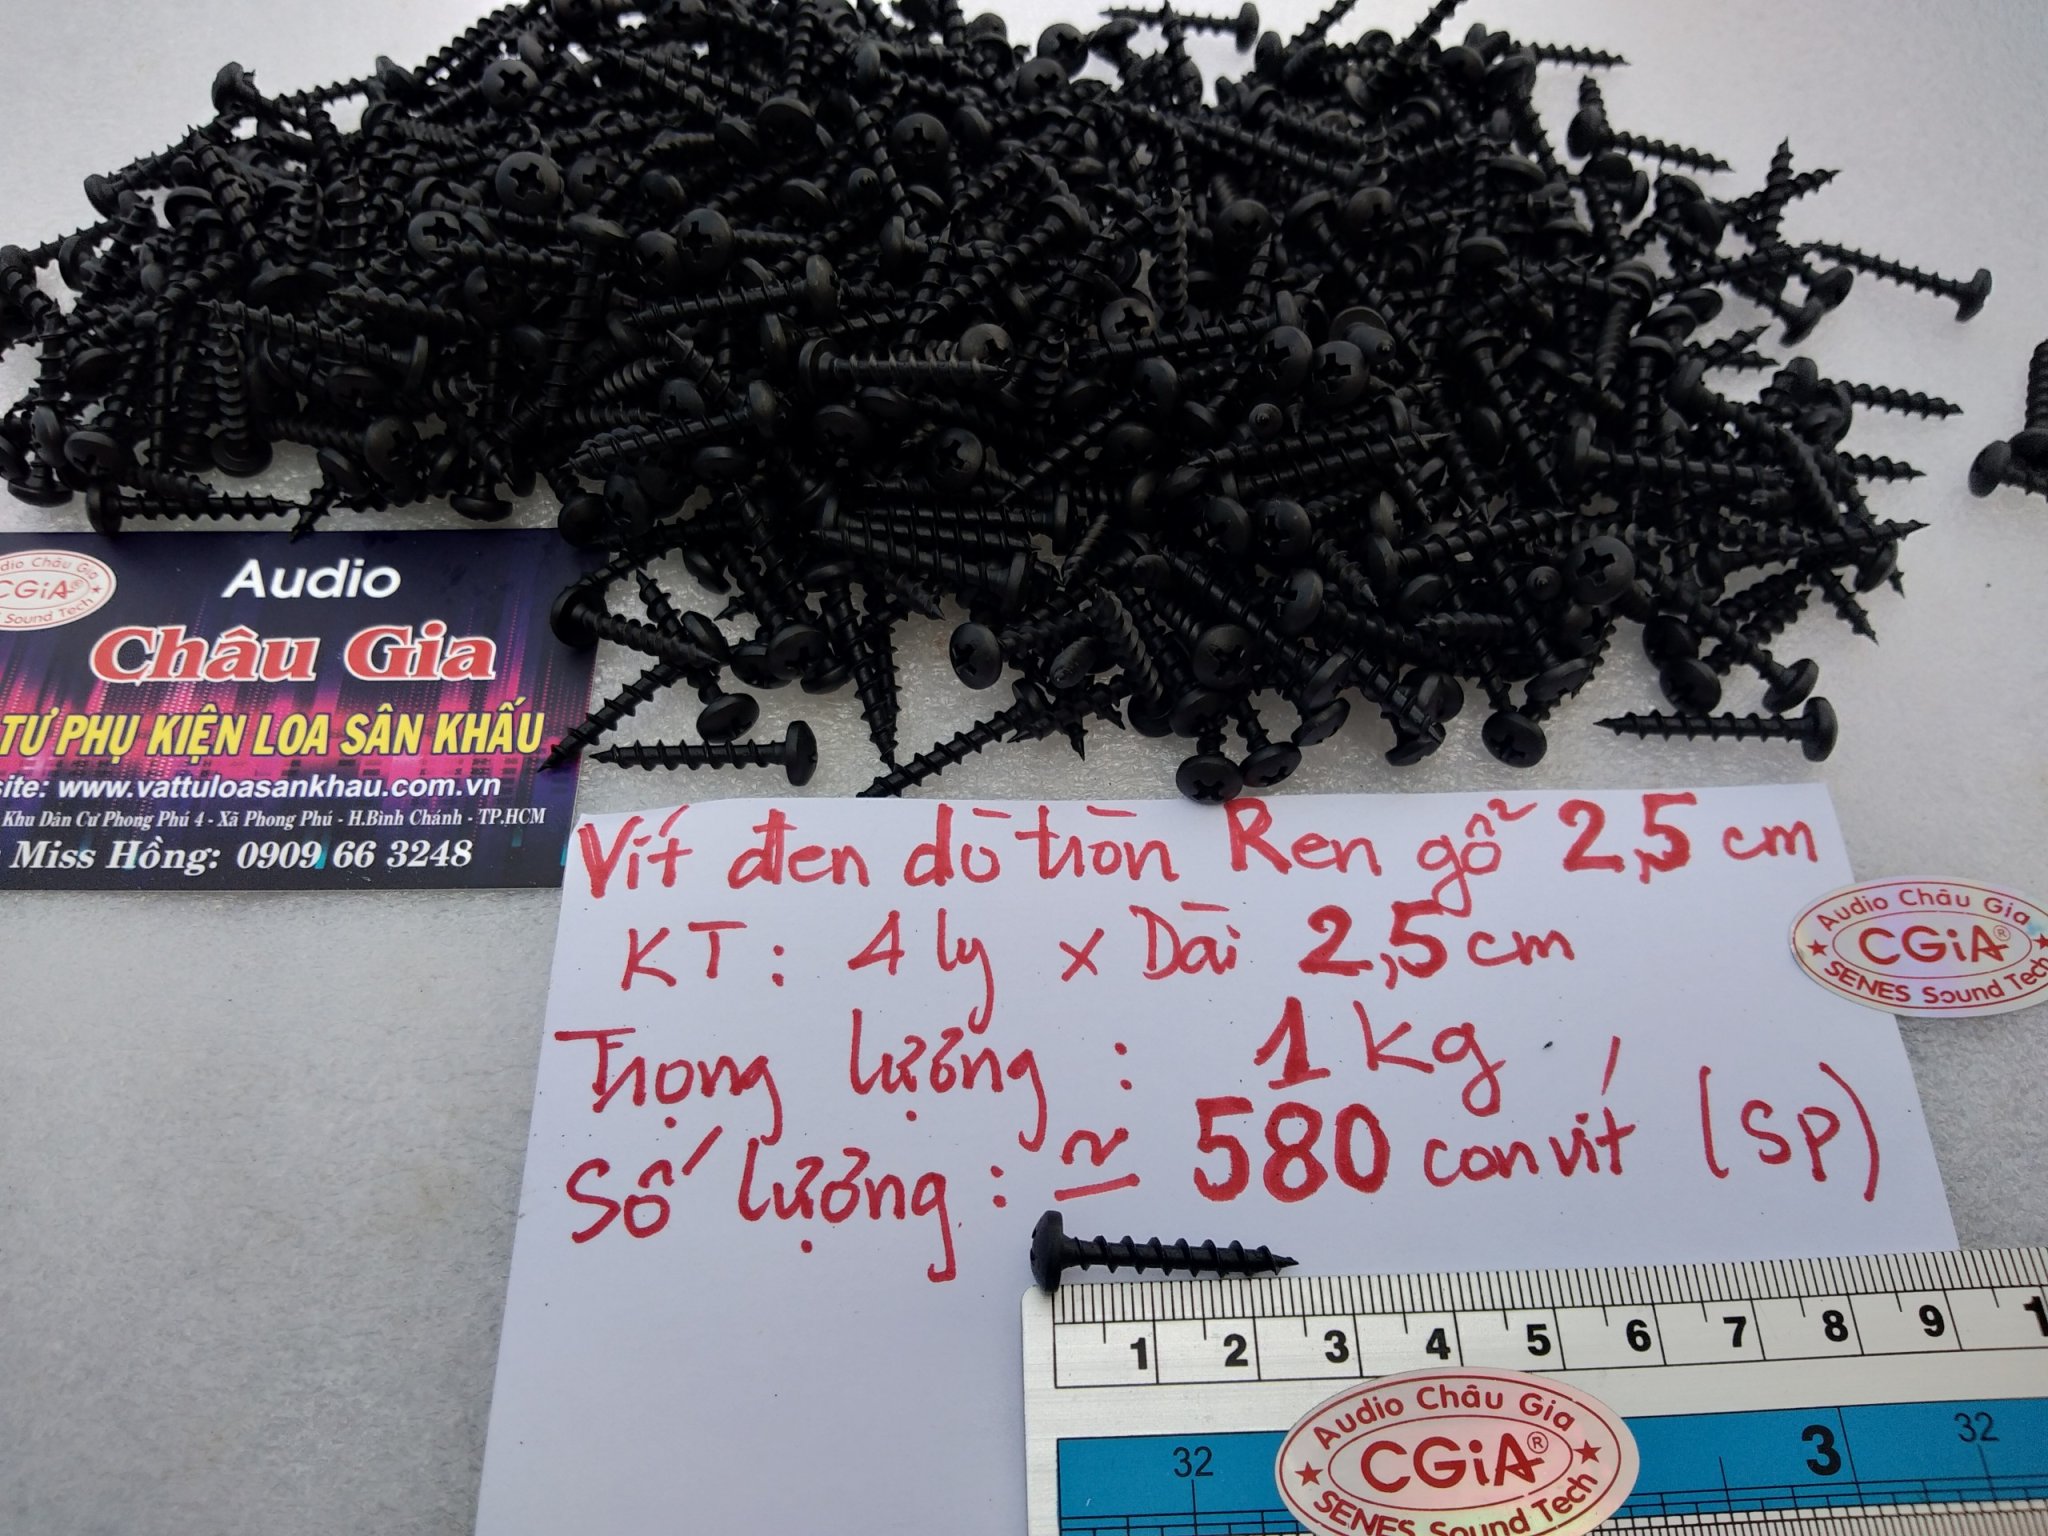 Audio
Châu Gia
TƯ PHỤ KIỆN LOA SÂN KHẤU
site: www.vattuloasankhau.com.vn
Khu Dân Cư Phong Phú 4 - Xã Phong Phú - H.Bình Chánh - TP.HCM
Miss Hồng: 0909 66 3248
dio Châu Gia
CGiA®
Sound Tech
Vít đen dù tròn Ren gỗ 2,5 cm
KT: 4 ly x Dài 2,5 cm
Trọng lượng: 1 kg
Số lượng: ≃ 580 con vít (SP)
Audio Châu Gia
CGiA®
SENES Sound Tech
1 2 3 4 5 6 7 8 9 1
32 3 32
Audio Châu Gia
CGiA®
SENES Sound Tech